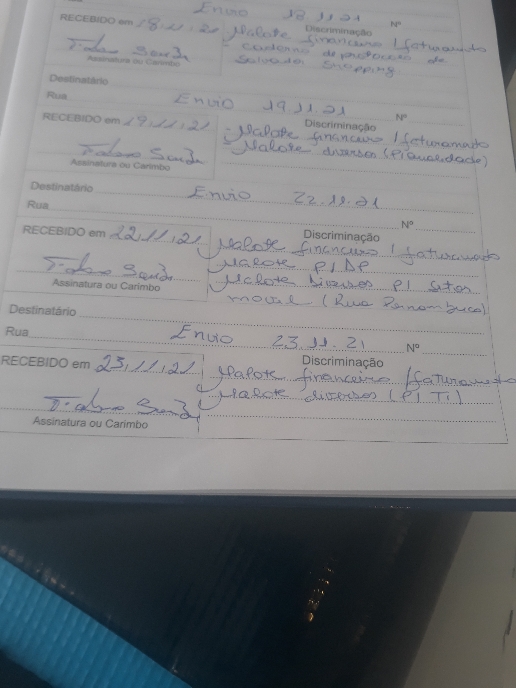 Envio 18.11.21
Nº
RECEBIDO em 18.11.21 Discriminação
Malote financeiro / faturamento
- caderno de protocolo de
Salvador Shopping
Assinatura ou Carimbo
Destinatário
Rua Envio 19.11.21 Nº
RECEBIDO em 19.11.21 Discriminação
- Malote financeiro / faturamento
- Malote diversos (P/ Qualidade)
Assinatura ou Carimbo
Destinatário Envio 22.11.21
Rua Nº
RECEBIDO em 22.11.21 Discriminação
Malote financeiro / faturamento
Malote P/ DP
Malote Diversos P/ Setor
movel (Rua Pernambuco)
Assinatura ou Carimbo
Destinatário
Rua Envio 23.11.21 Nº
RECEBIDO em 23.11.21 Discriminação
Malote financeiro / faturamento
Malote diversos (P/ TI)
Assinatura ou Carimbo